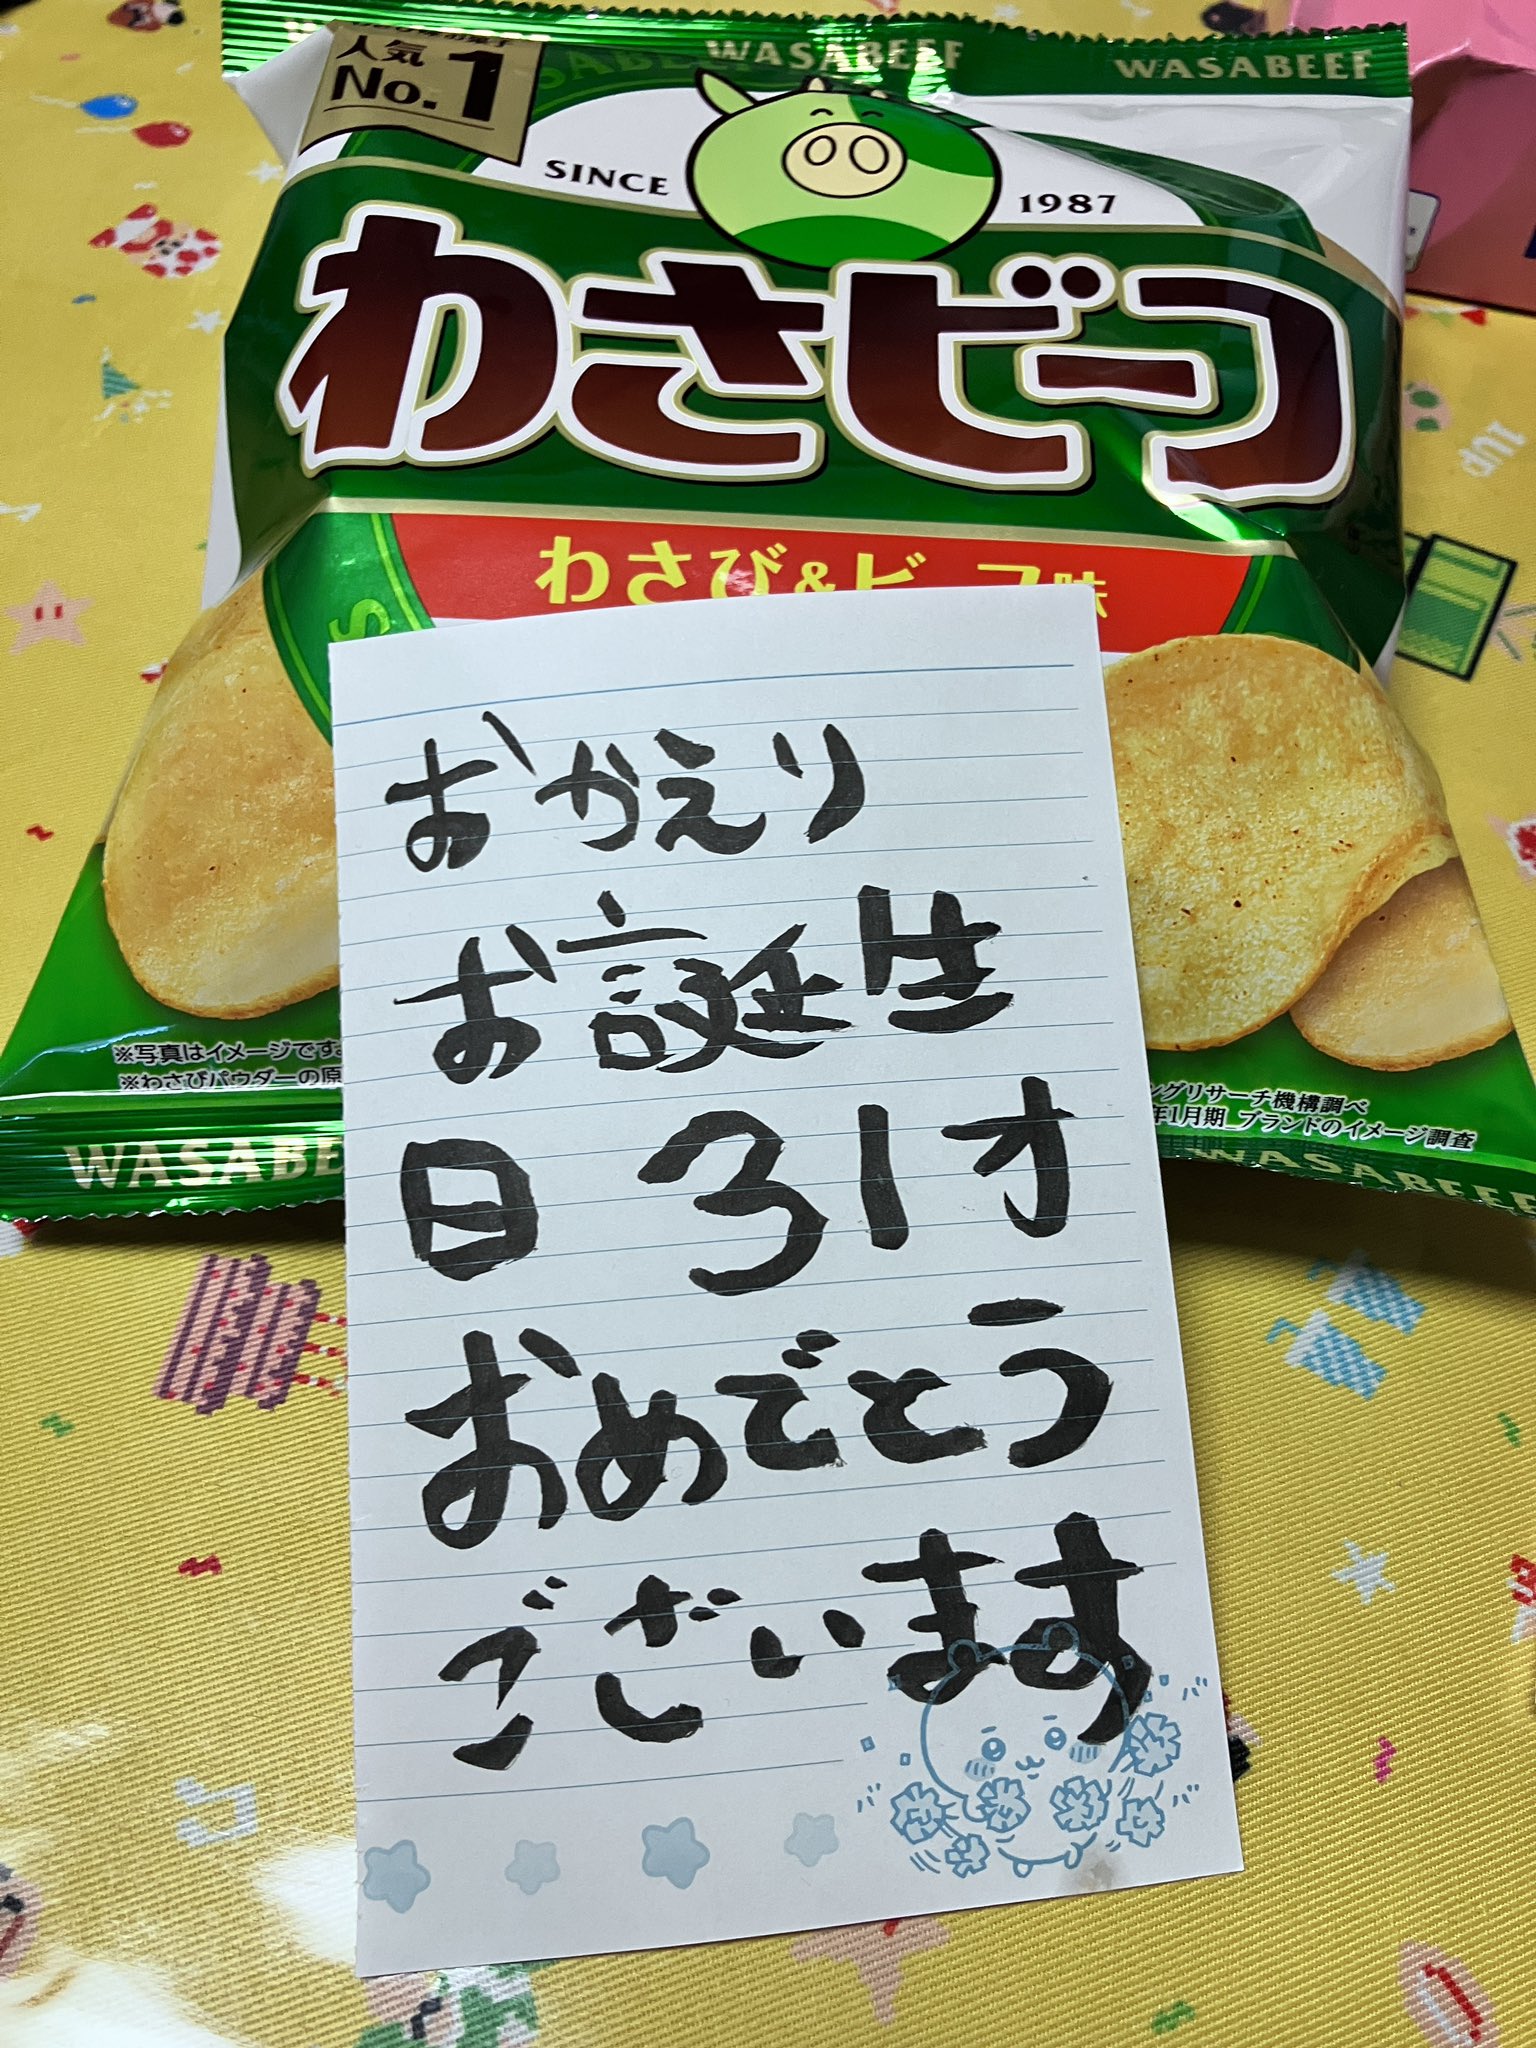 WASABEEF
WASABEEF
人気
No.1
SINCE 1987
わさビーフ
わさび&ビーフ味
おかえり
お誕生
日 31才
おめでとう
ございます
※写真はイメージです
※わさびパウダーの原
ングリサーチ機構調べ
年1月期_ブランドのイメージ調査
WASABE
WASABEEF
1UP